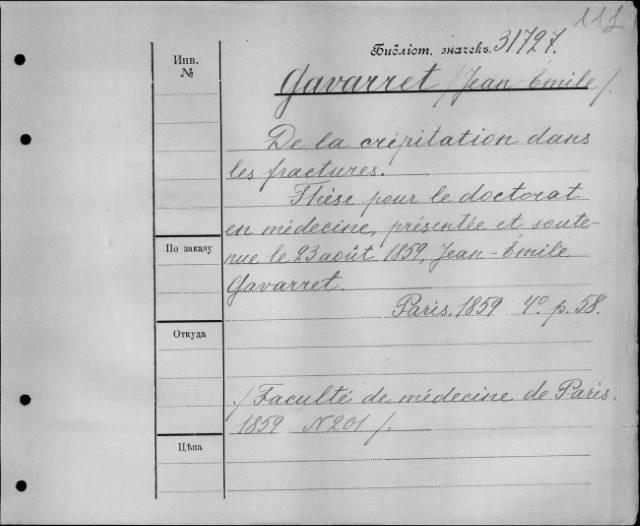 111
Библіот. значекъ. 31727.
Инв.
№
Gavarret /Jean-Emile/.
De la crépitation dans
les fractures.
Thèse pour le doctorat
en médecine, présentée et soute-
По заказу
nue le 23 août 1859, Jean-Emile
Gavarret.
Paris. 1859 4º. p. 58.
Откуда
/Faculté de médecine de Paris.
1859 N 201/.
Цѣна